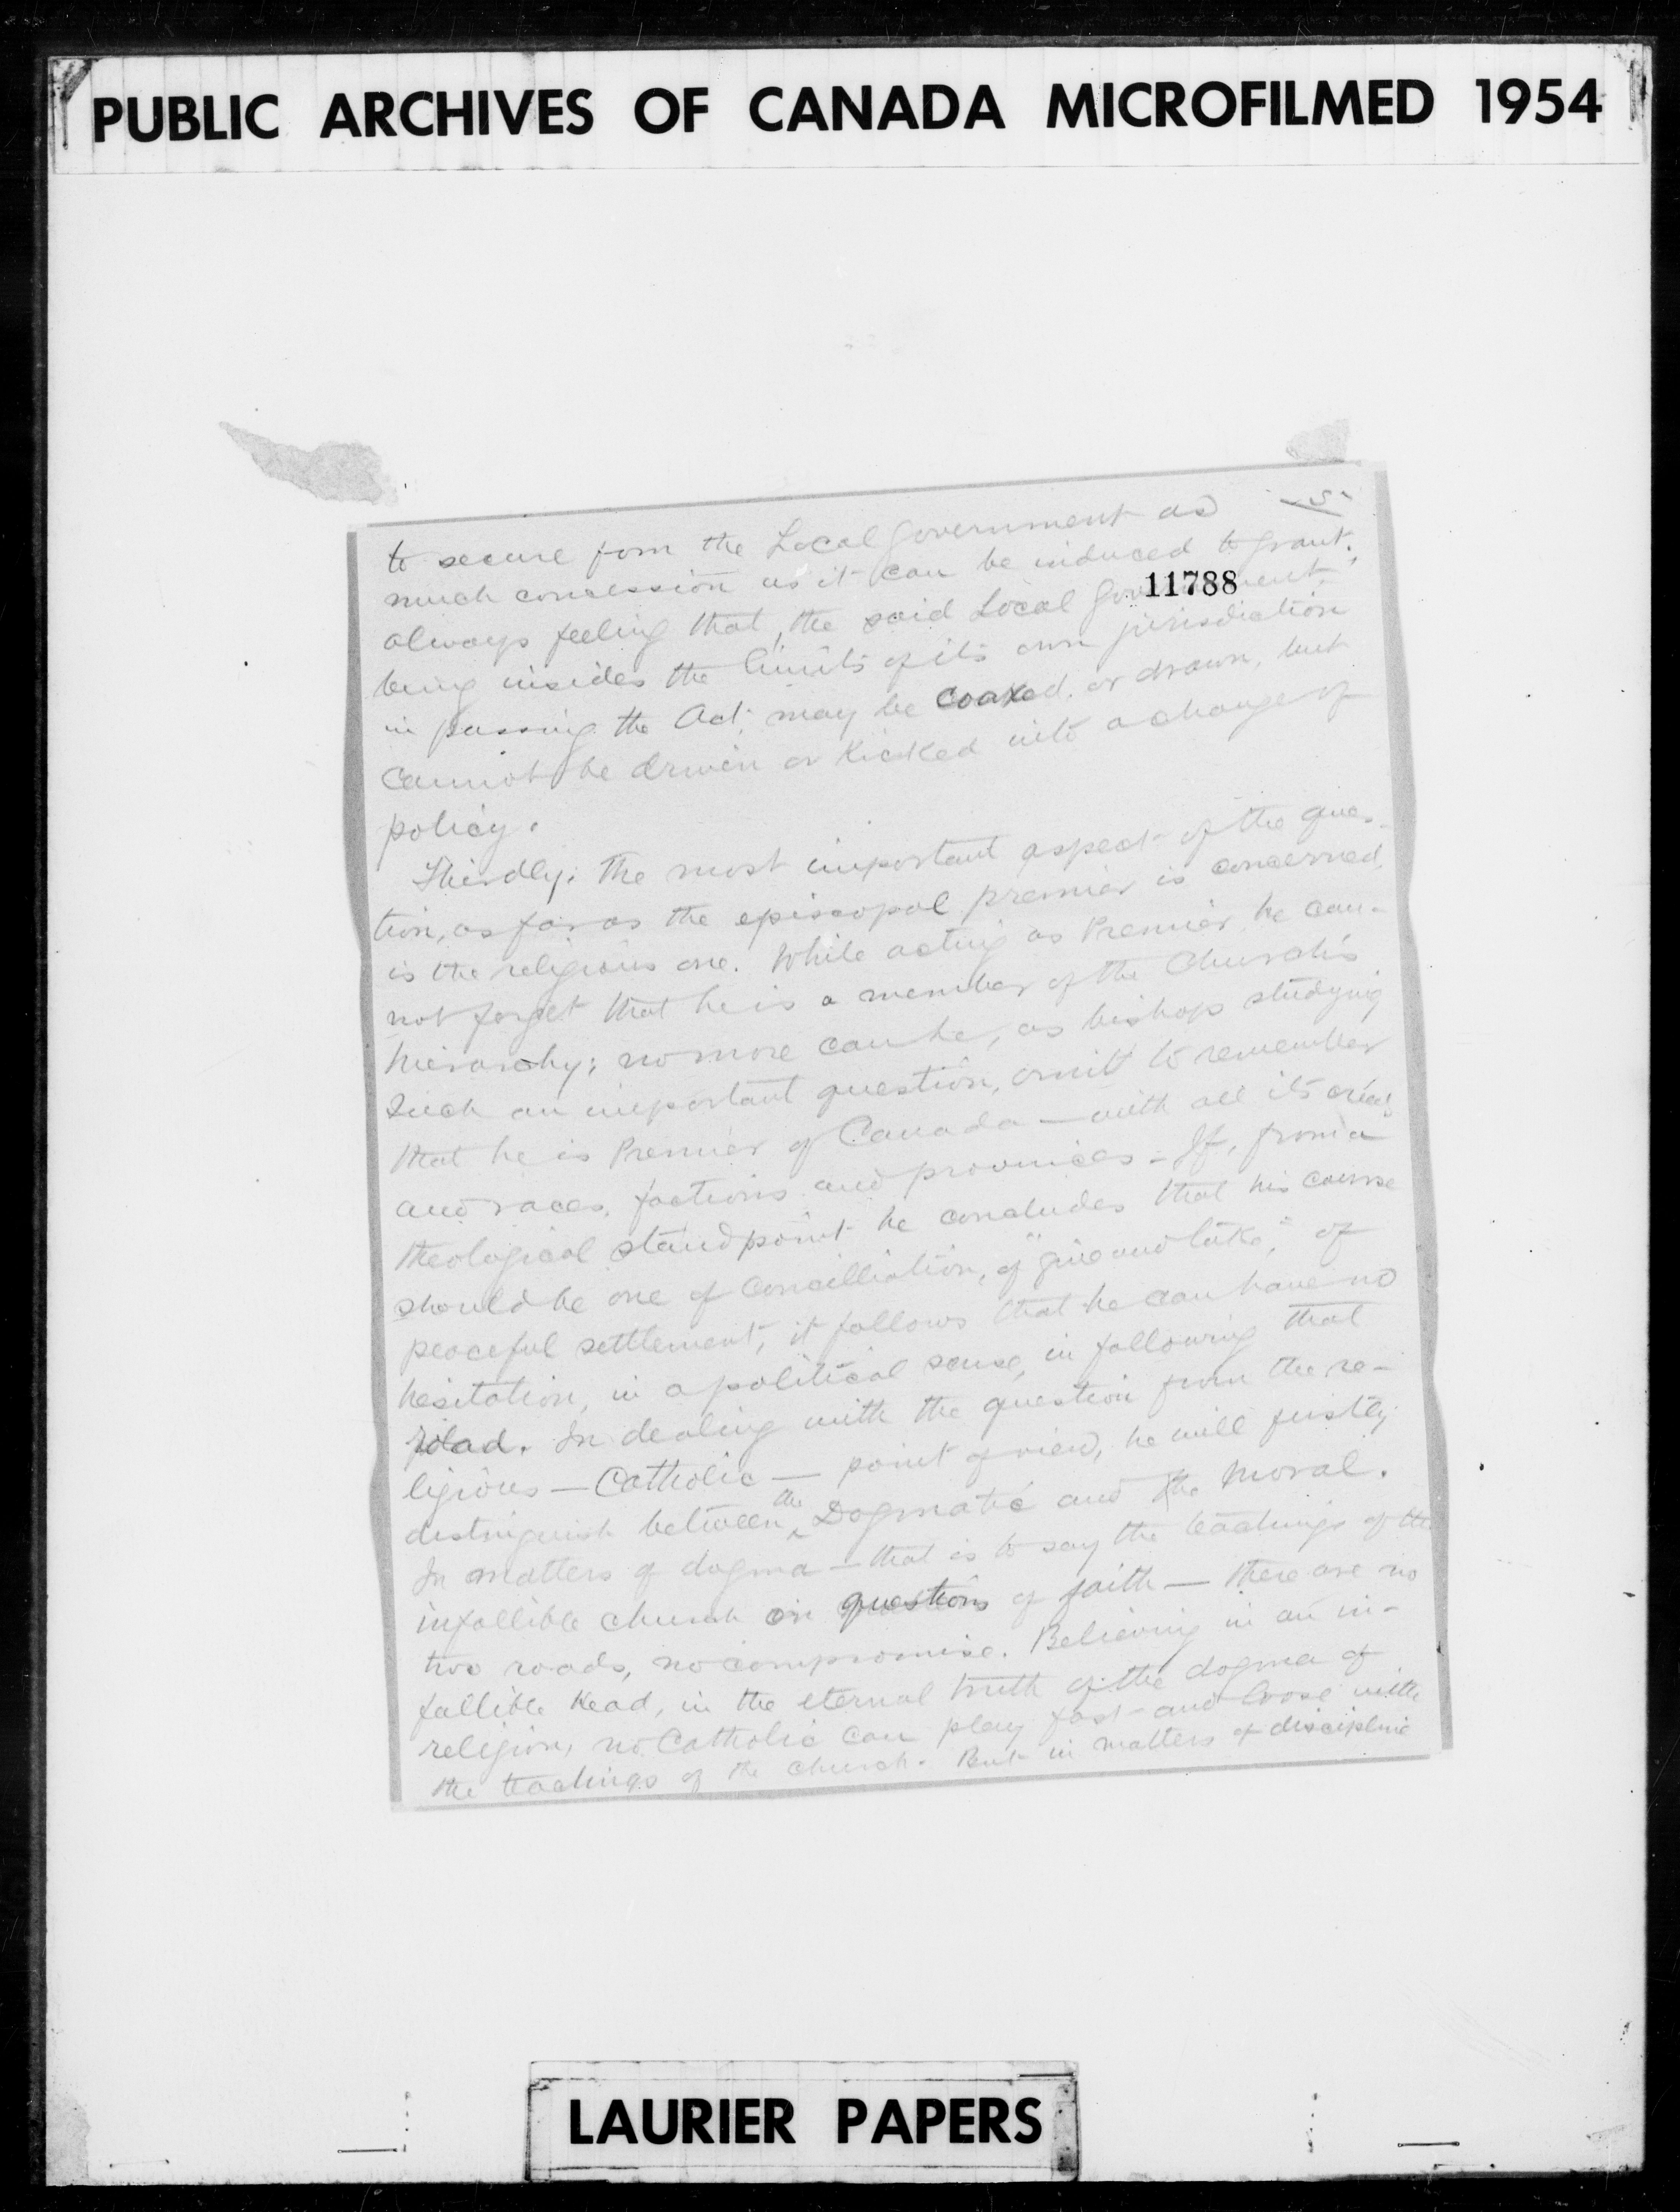 PUBLIC ARCHIVES OF CANADA MICROFILMED 1954
5
to secure from the Local Government as
much concession as it can be induced to grant;
11788
always feeling that, the said Local Government,
being insides the limits of its own jurisdiction
in passing the Act, may be coaxed or drawn, but
cannot be driven or kicked into a change of
policy.
Thirdly: The most important aspect of the ques-
tion, as far as the episcopal premier is concerned,
is the religious one. While acting as Premier he can-
not forget that he is a member of the Church's
hierarchy; no more can he, as bishop studying
such an important question, omit to remember
that he is Premier of Canada — with all its creeds
and races, factions and provinces. If, from a
theological standpoint he concludes that his course
should be one of concilliation, of "give and take," of
peaceful settlement, it follows that he can have no
hesitation, in a political sense, in following that
road. In dealing with the question from the re-
ligious — Catholic — point of view, he will justly
distinguish between the Dogmatic and the Moral.
In matters of dogma — that is to say the teachings of the
infallible church on questions of faith — there are no
two roads, no compromise. Believing in an in-
fallible Head, in the eternal truth of the dogma of
religion, no Catholic can play fast and loose with
the teachings of the church. But in matters of discipline
LAURIER PAPERS